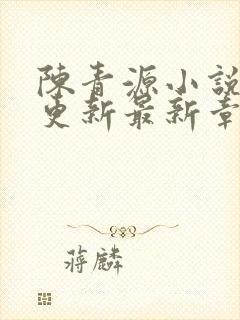 陳青源小說
更新最新章
蔣麟